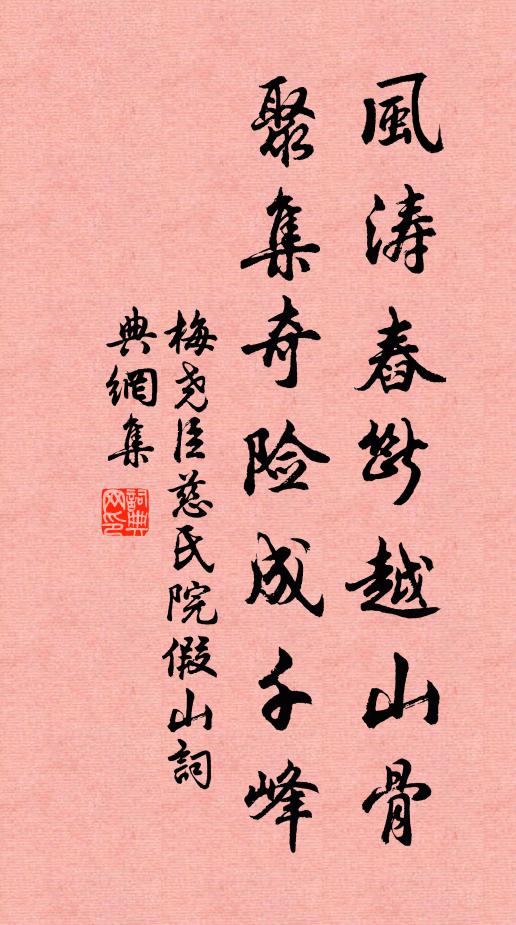 風涛舂断越山骨
聚集奇险成千峰
梅尧臣慈氏院假山詞
典網集
詞典網印